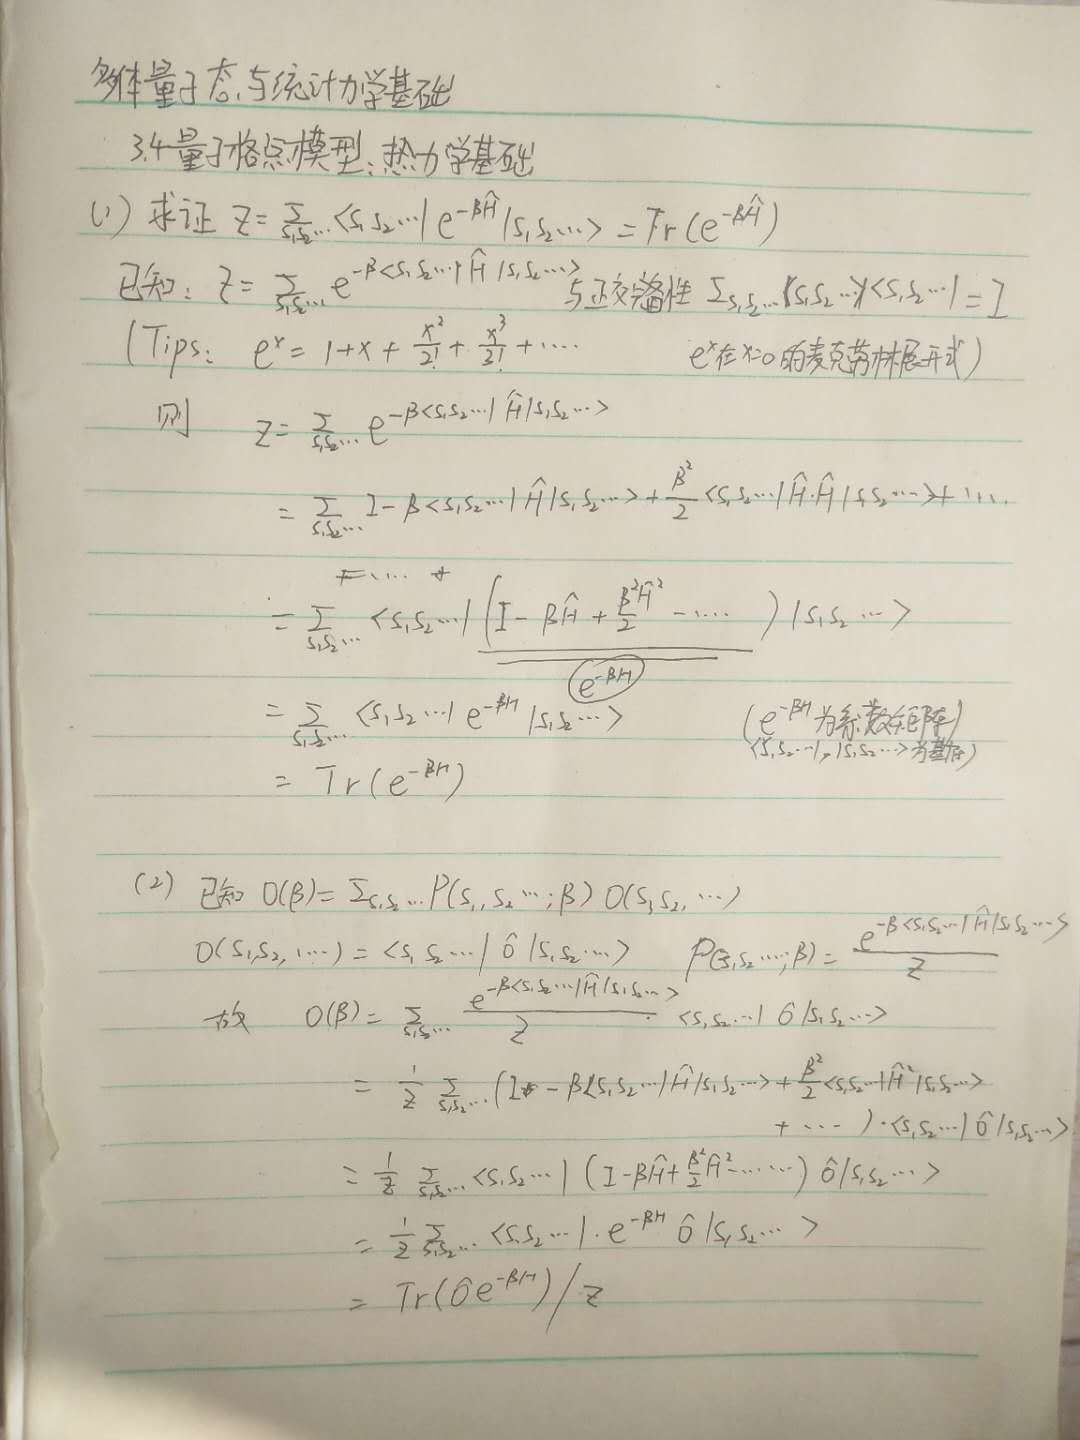 多体量子态与统计力学基础
3.4 量子格点模型:热力学基础
(1) 求证 Z = Σ_{S₁S₂…} <S₁S₂…| e^{-βĤ} |S₁S₂…> = Tr(e^{-βĤ})
已知: Z = Σ_{S₁S₂…} e^{-β<S₁S₂…|Ĥ|S₁S₂…>} 与正交完备性 Σ_{S₁S₂…} |S₁S₂…><S₁S₂…| = I
(Tips: eˣ = 1+x+ x²/2! + x³/3! + …… eˣ在x=0的麦克劳林展开式)
则 Z = Σ_{S₁S₂…} e^{-β<S₁S₂…|Ĥ|S₁S₂…>}
= Σ_{S₁S₂…} I - β<S₁S₂…|Ĥ|S₁S₂…> + β²/2 <S₁S₂…|Ĥ·Ĥ|S₁S₂…> + ….
= …. +
= Σ_{S₁S₂…} <S₁S₂…| (I - βĤ + β²Ĥ²/2 - ……) |S₁S₂…>
e^{-βH}
= Σ_{S₁S₂…} <S₁S₂…| e^{-βH} |S₁S₂…> (e^{-βH}为系数矩阵)
<S₁S₂…|,|S₁S₂…>为基底)
= Tr(e^{-βH})
(2) 已知 O(β) = Σ_{S₁S₂…} P(S₁,S₂…;β) O(S₁S₂,…)
O(S₁,S₂,…) = <S₁S₂…|Ô|S₁S₂…> P(S₁S₂…;β) = e^{-β<S₁S₂…|Ĥ|S₁S₂…>}/Z
故 O(β) = Σ_{S₁S₂…} e^{-β<S₁S₂…|Ĥ|S₁S₂…>}/Z · <S₁S₂…|Ô|S₁S₂…>
= 1/Z Σ_{S₁S₂…} (I - β<S₁S₂…|Ĥ|S₁S₂…> + β²/2 <S₁S₂…|Ĥ²|S₁S₂…>
+ …)·<S₁S₂…|Ô|S₁S₂…>
= 1/Z Σ_{S₁S₂…} <S₁S₂…| (I-βĤ+β²/2 Ĥ²-……) Ô|S₁S₂…>
= 1/Z Σ_{S₁S₂…} <S₁S₂…|·e^{-βH} Ô |S₁S₂…>
= Tr(Ôe^{-βH})/Z